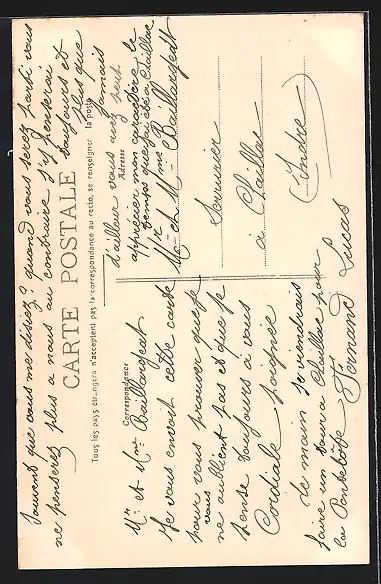 Souvent que vous me disiez? quand vous serez parti vous
ne penserez plus a nous au contraire j'y penserai
toujours et
plus que
jamais
CARTE POSTALE
Tous les pays étrangers n'acceptent pas la correspondance au recto, se renseigner à la poste
d'ailleur vous avez peut
apprécier mon caractère le
temps que j'ai été a Chaillac
Correspondance
Adresse
Mr et Mme Baillargeat
Je vous envoit cette carte
pour vous prouver que je
vous
ne oublient pas et que je
pense toujours à vous
Cordiale poignée
de main Je viendrais
faire un tour a Chaillac pour
la Pentecôte Fernand Lucas
Mr et Mme Baillargeat
Serrurier
à Chaillac
(Indre)